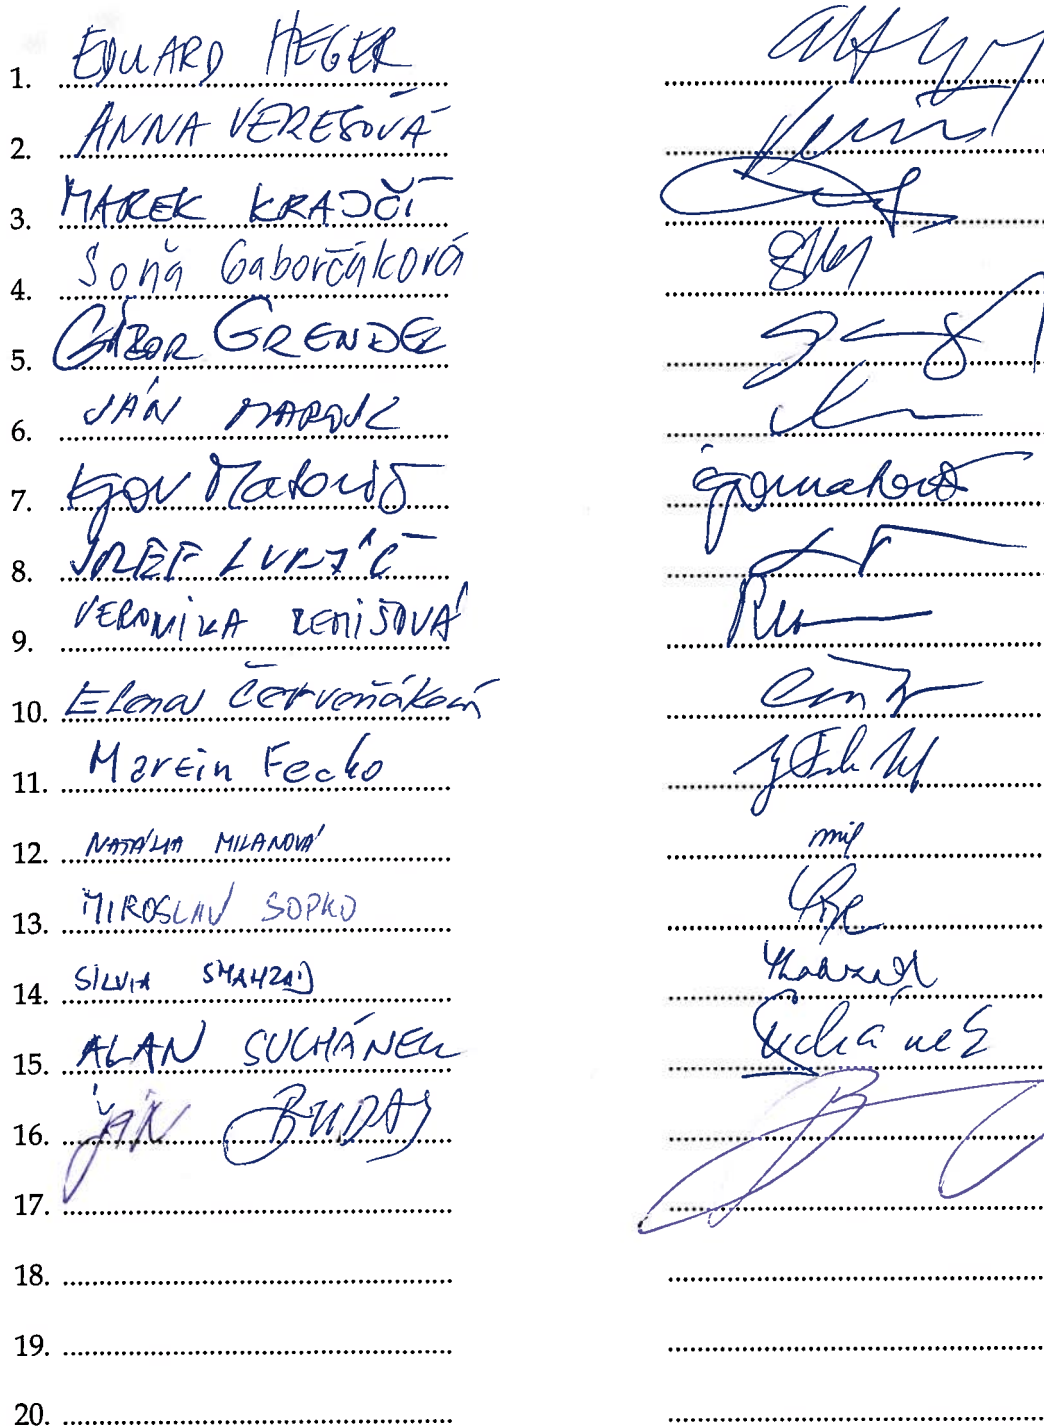 1. EDUARD HEGER
2. ANNA VEREŠOVÁ
3. MAREK KRAJČÍ
4. Soňa Gaborčáková
5. GÁBOR GRENDEL
6. JÁN MAROSZ
7. Igor Matovič Igor Matovič
8. JOZEF LUKÁČ
9. VERONIKA REMIŠOVÁ
10. Elena Červeňáková
11. Martin Fecko
12. NATÁLIA MILANOVÁ mil
13. MIROSLAV SOPKO
14. SILVIA SHAHZAD Shahzad
15. ALAN SUCHÁNEK Suchánek
16. JÁN BUDAJ
17.
18.
19.
20.